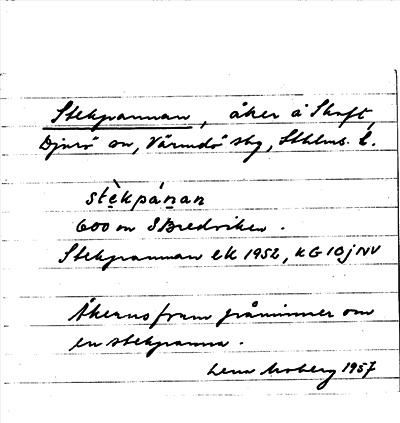 Stekpannan, åker å Skaft,
Djurö sn, Värmdö sky, Sthlms. L.
stèkpánan
600 m S Bredviken.
Stekpannan ek 1952, KG 10j NV
Åkerns form påminner om
en stekpanna.
Lena Moberg 1957